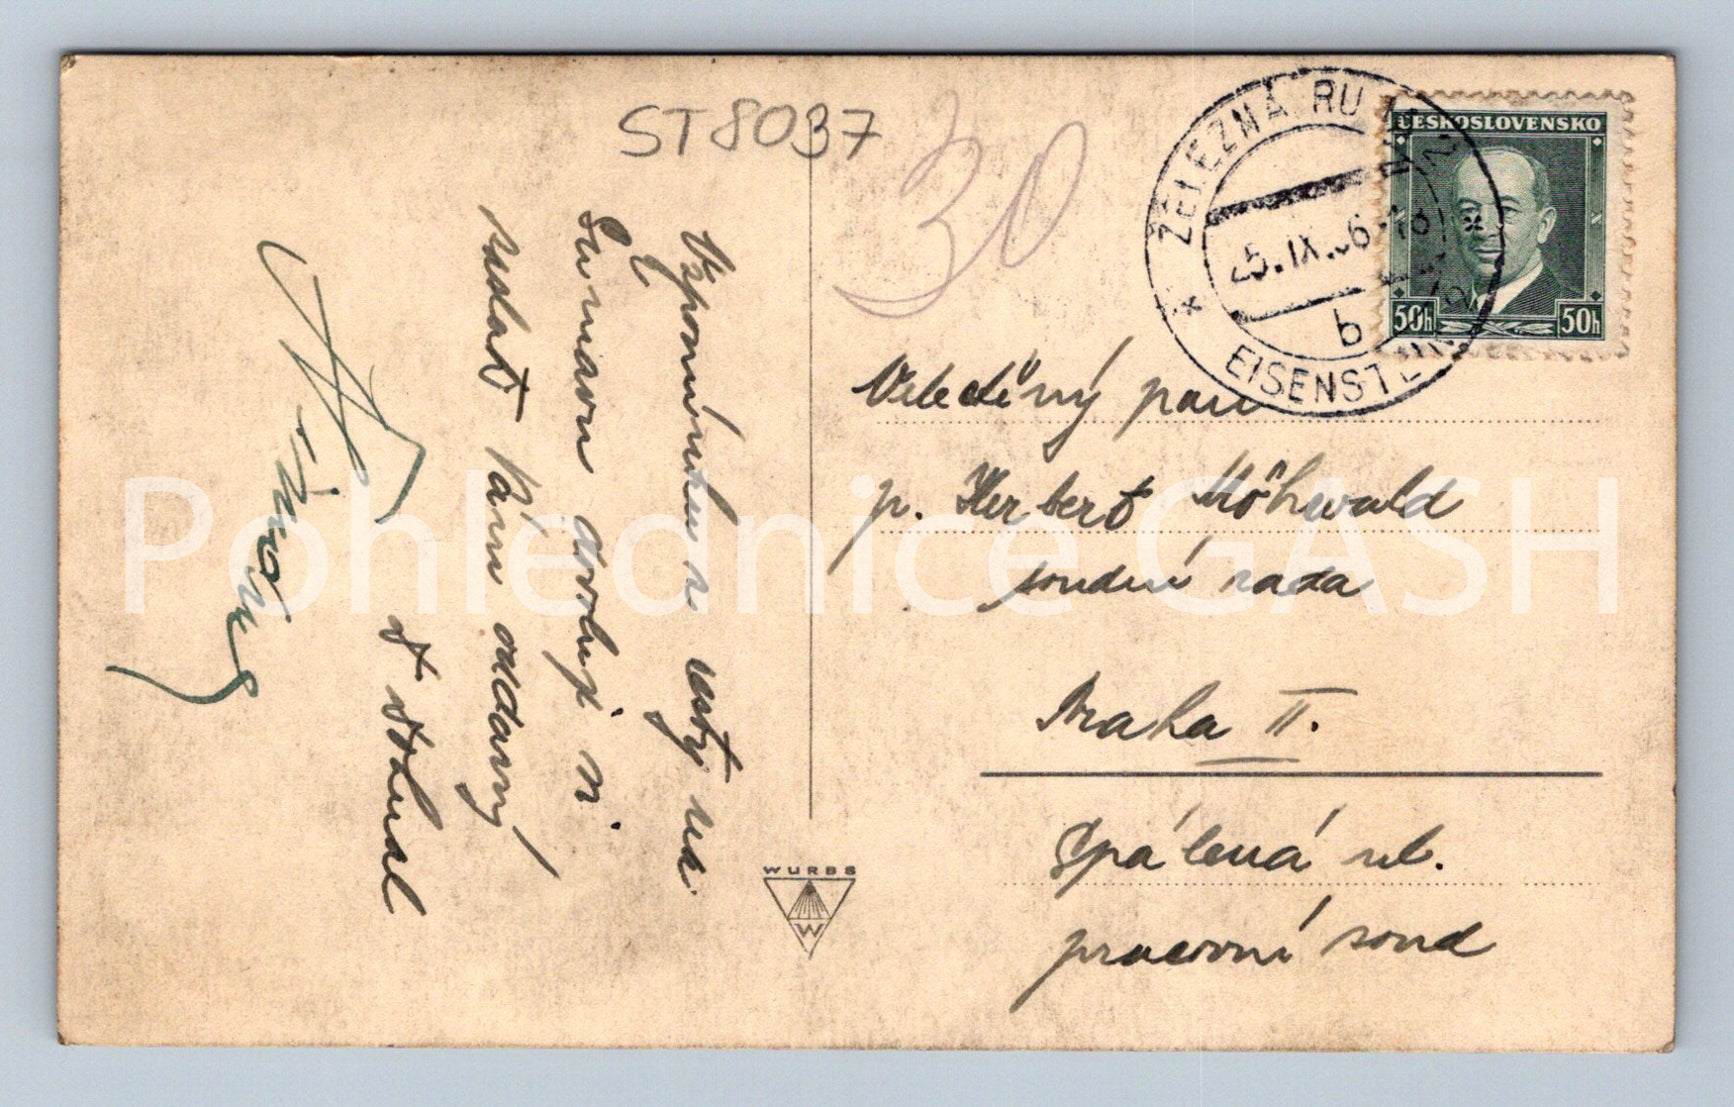 ST8037
30
ŽELEZNÁ RU
25.IX.36-16
b
EISENSTEIN
ČESKOSLOVENSKO
50h 50h
Vzpomínku z cesty na
Šumavu dovoluji
Vám oddaný
Veletěný pan
p. Herbert Möhwald
soudní rada
Praha II.
Spálená ul.
pracovní soud
WURBS
W
Pohlednice GASH